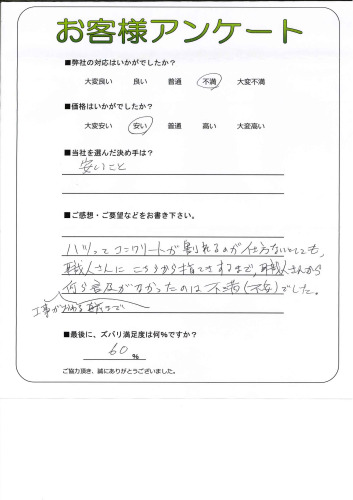 お客様アンケート
■弊社の対応はいかがでしたか?
大変良い 良い 普通 不満 大変不満
■価格はいかがでしたか?
大変安い 安い 普通 高い 大変高い
■当社を選んだ決め手は?
安いこと
■ご感想・ご要望などをお書き下さい。
ハツってコンクリートが割れるのが仕方ないとしても、
職人さんにこちらから指てきするまで、職人さんから
何ら言及がなかったのは不満(不安)でした。
工事が終わる直前まで
■最後に、ズバリ満足度は何%ですか?
60%
ご協力頂き、誠にありがとうございました。